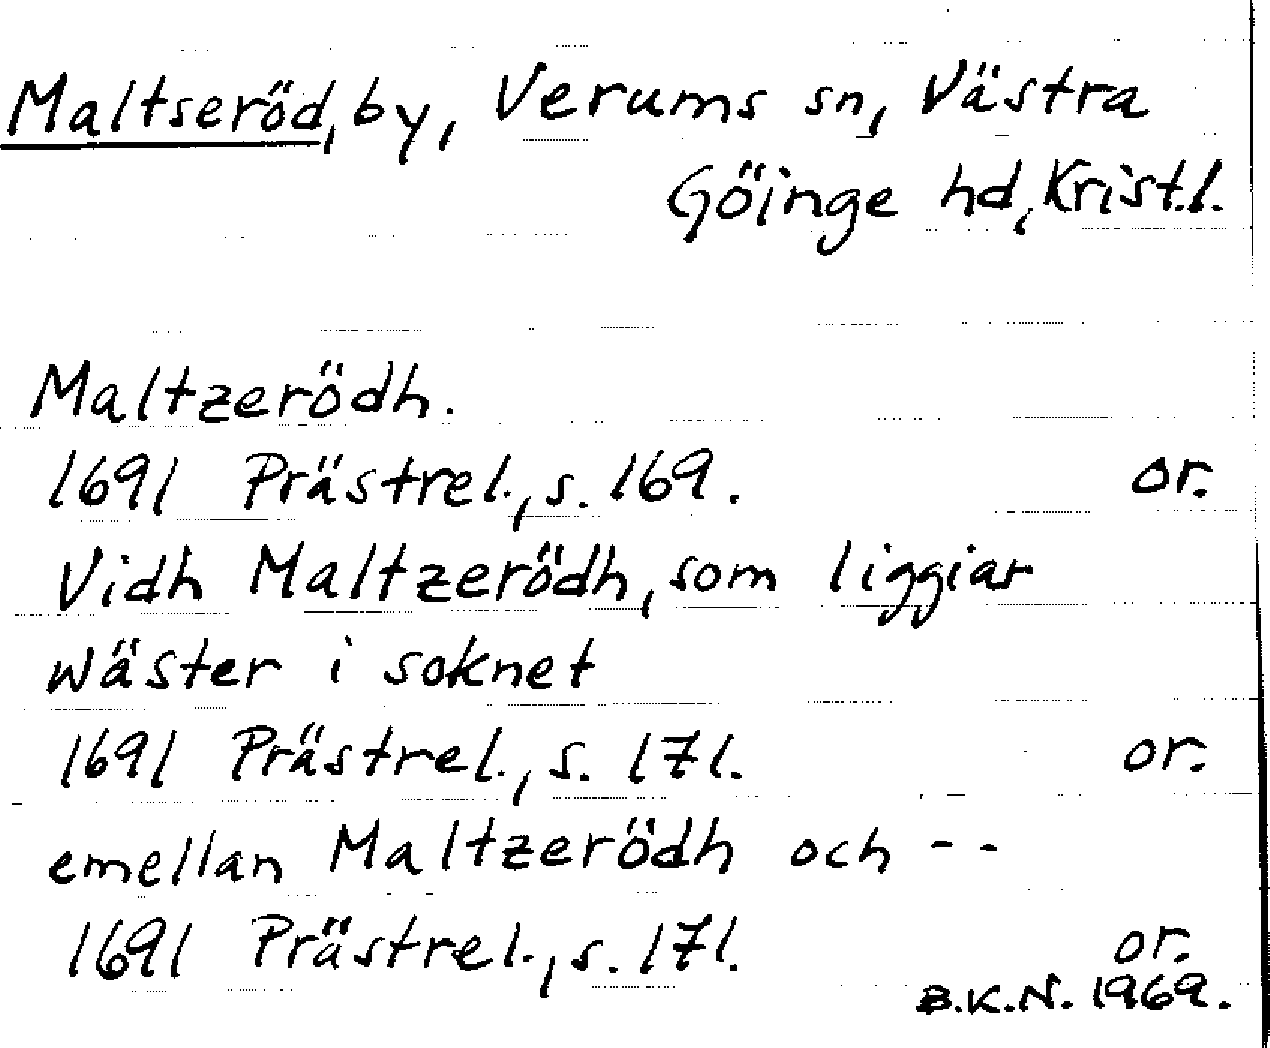 Maltseröd, by, Verums sn, Västra
Göinge hd, Krist.l.
Maltzerödh.
1691 Prästrel., s. 169. or.
Vidh Maltzerödh, som liggiar
wäster i soknet
1691 Prästrel., s. 171. or.
emellan Maltzerödh och - -
1691 Prästrel., s. 171. or.
B.K.N. 1969.